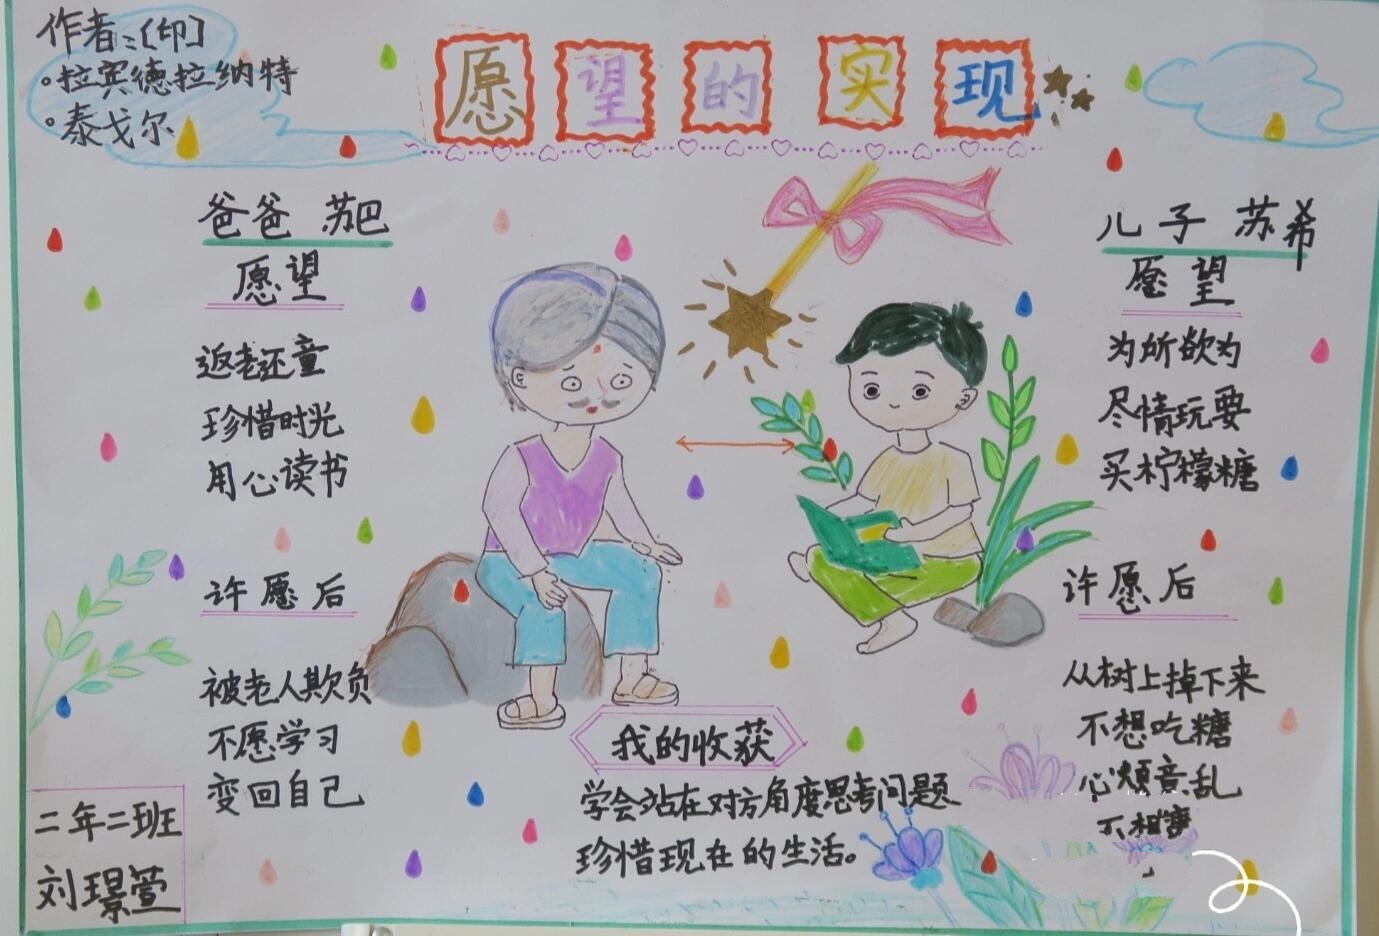 作者：〔印〕
·拉宾德拉纳特
·泰戈尔
愿望的实现
爸爸 苏巴
愿望
返老还童
珍惜时光
用心读书
许愿后
被老人欺负
不愿学习
变回自己
儿子 苏希
愿望
为所欲为
尽情玩耍
买柠檬糖
许愿后
从树上掉下来
不想吃糖
心烦意乱
我的收获
学会站在对方角度思考问题
珍惜现在的生活。
二年二班
刘璟萱